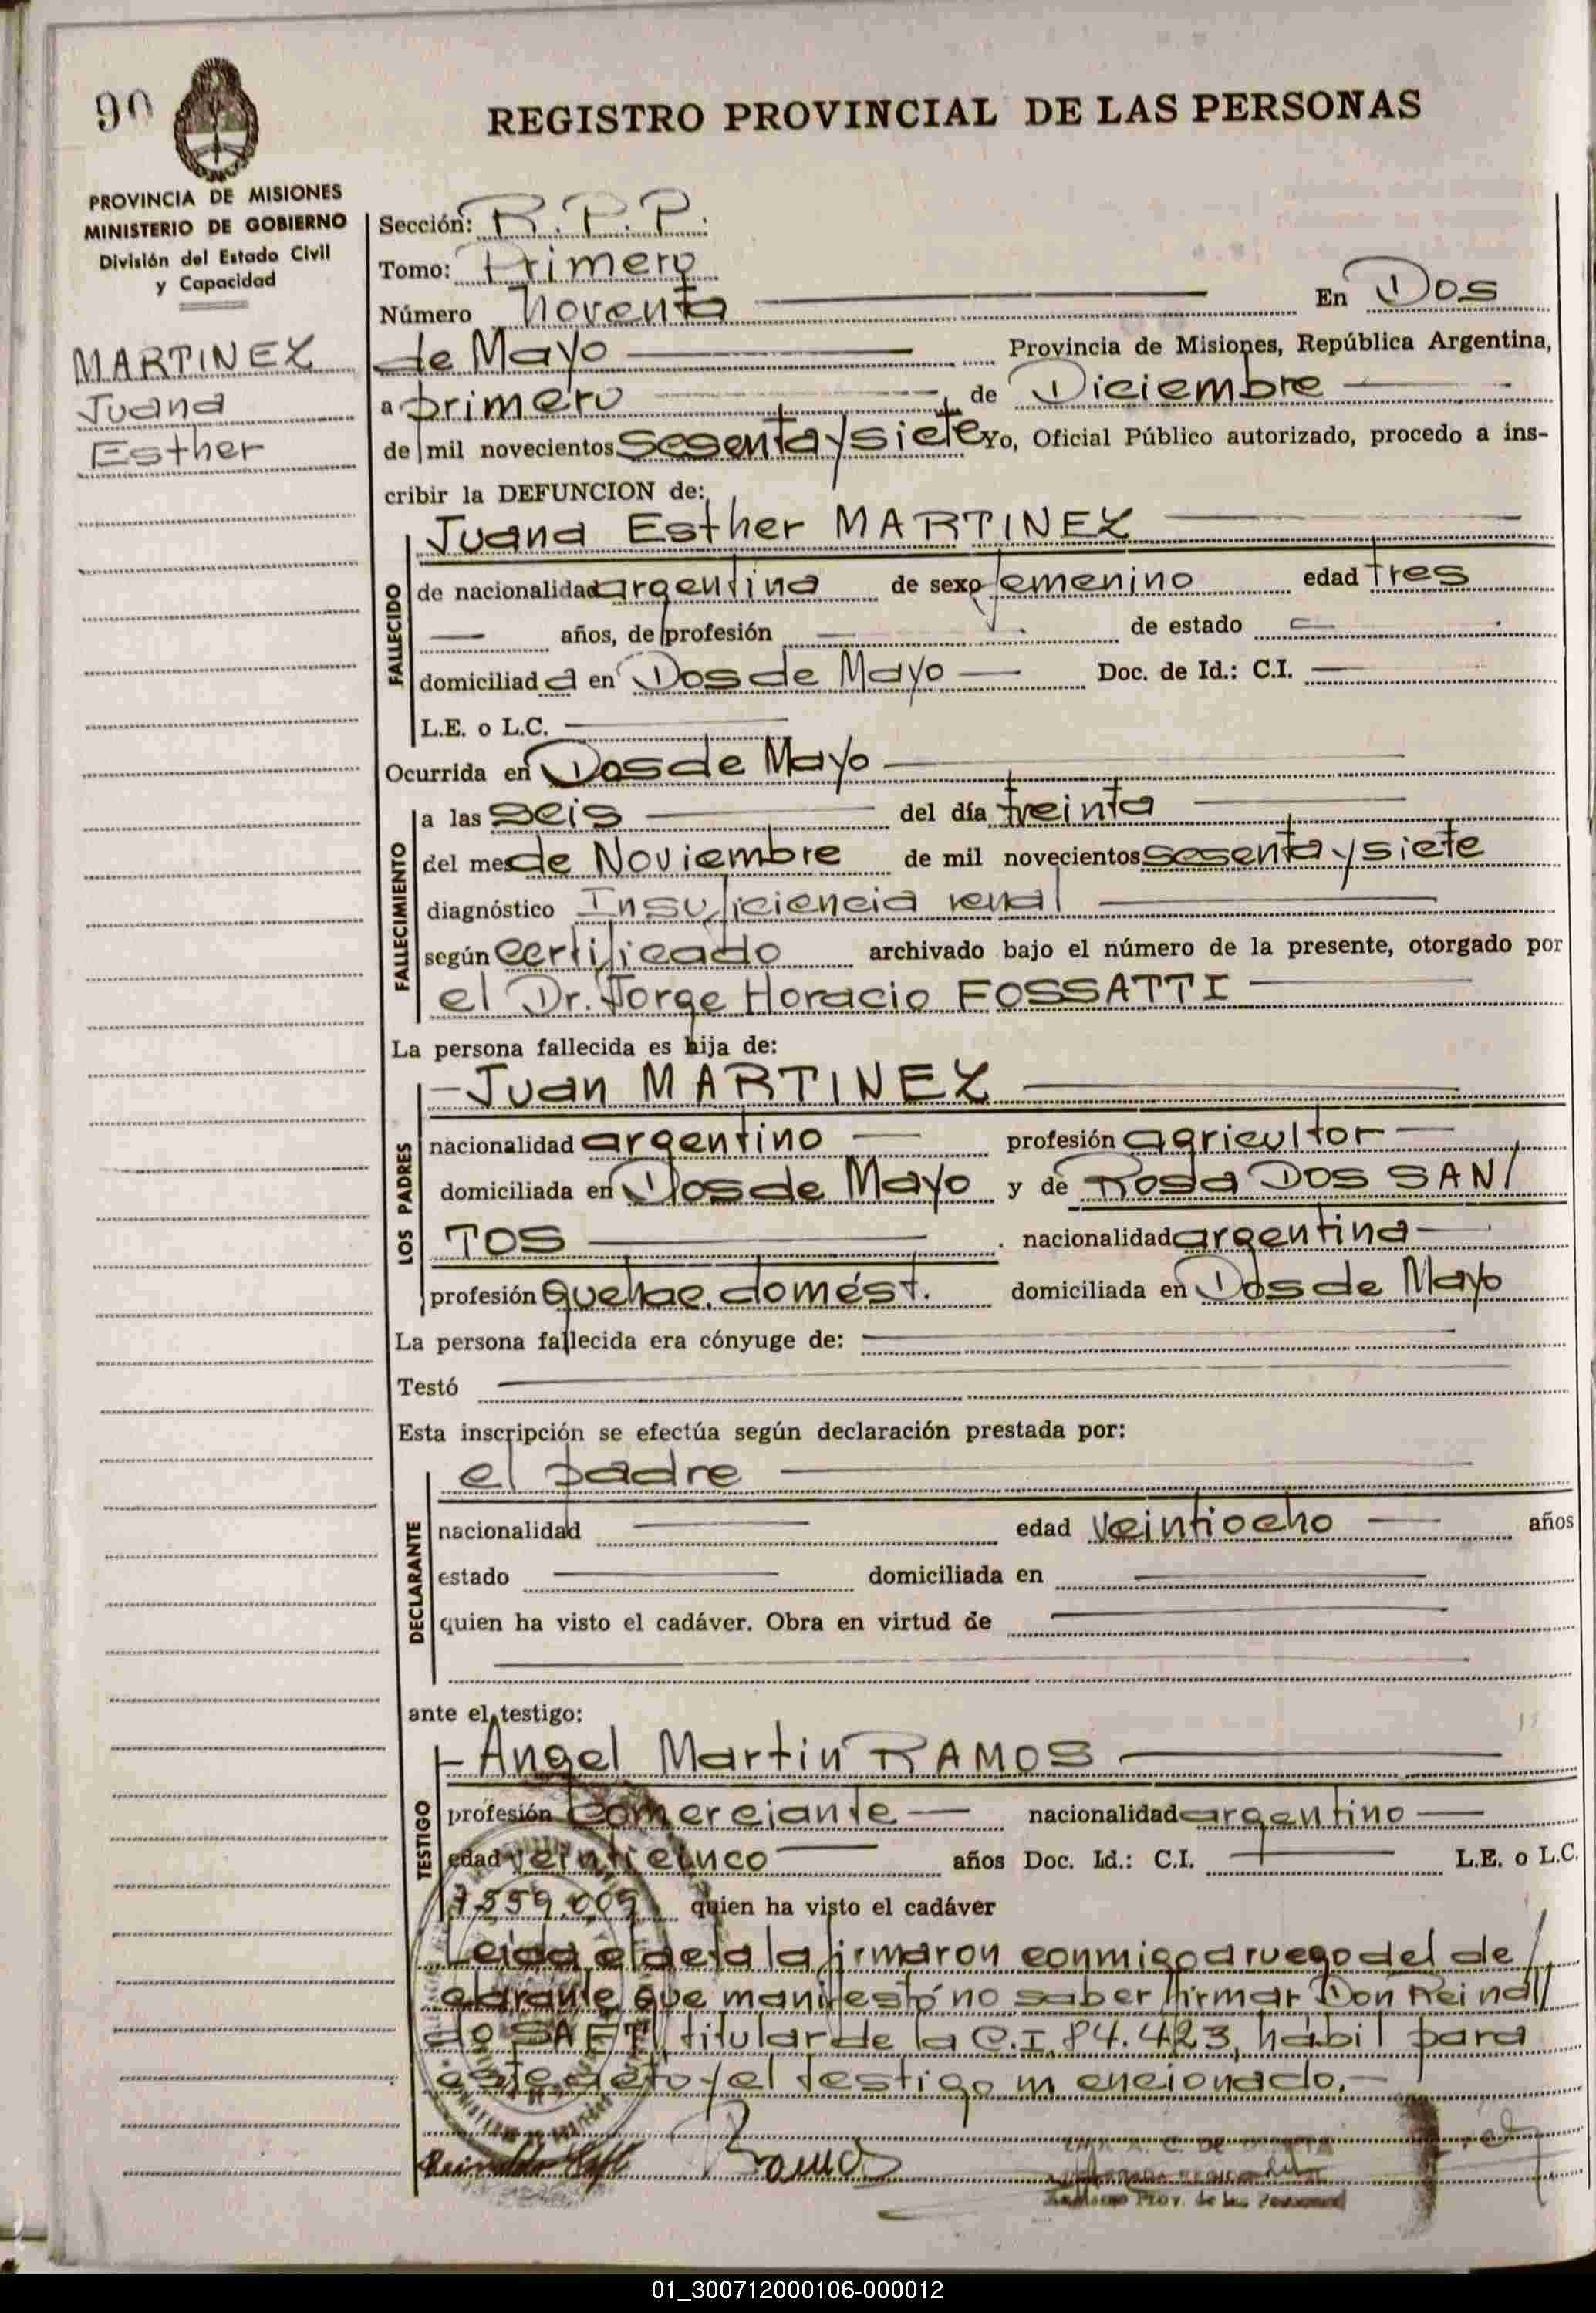 90
REGISTRO PROVINCIAL DE LAS PERSONAS
PROVINCIA DE MISIONES
MINISTERIO DE GOBIERNO
División del Estado Civil
y Capacidad
MARTINEZ
Juana
Esther
Sección: R.P.P.
Tomo: Primero
Número Noventa En Dos
de Mayo Provincia de Misiones, República Argentina,
a primero de Diciembre
de mil novecientos sesenta y siete Yo, Oficial Público autorizado, procedo a ins-
cribir la DEFUNCION de:
Juana Esther MARTINEZ
FALLECIDO
de nacionalidad argentina de sexo femenino edad tres
años, de profesión de estado
domiciliad a en Dos de Mayo Doc. de Id.: C.I.
L.E. o L.C.
Ocurrida en Dos de Mayo
FALLECIMIENTO
a las seis del día treinta
del mes de Noviembre de mil novecientos sesenta y siete
diagnóstico Insuficiencia renal
según certificado archivado bajo el número de la presente, otorgado por
el Dr. Jorge Horacio FOSSATTI
La persona fallecida es hija de:
LOS PADRES
Juan MARTINEZ
nacionalidad argentino profesión agricultor
domiciliada en Dos de Mayo y de Rosa DOS SAN/
TOS . nacionalidad argentina
profesión Quehac. domést. domiciliada en Dos de Mayo
La persona fallecida era cónyuge de:
Testó
Esta inscripción se efectúa según declaración prestada por:
DECLARANTE
el padre
nacionalidad edad veintiocho años
estado domiciliada en
quien ha visto el cadáver. Obra en virtud de
ante el testigo:
TESTIGO
Angel Martin RAMOS
profesión Comerciante nacionalidad argentino
edad veinticinco años Doc. Id.: C.I. L.E. o L.C.
7.559.009 quien ha visto el cadáver
Leida el acta la firmaron conmigo a ruego del de/
clarante que manifestó no saber firmar Don Reinal//
do titular de la C.I. 84.423, hábil para
este acto y el testigo mencionado.-
Ramos
Prov. de las Personas
01_300712000106-000012